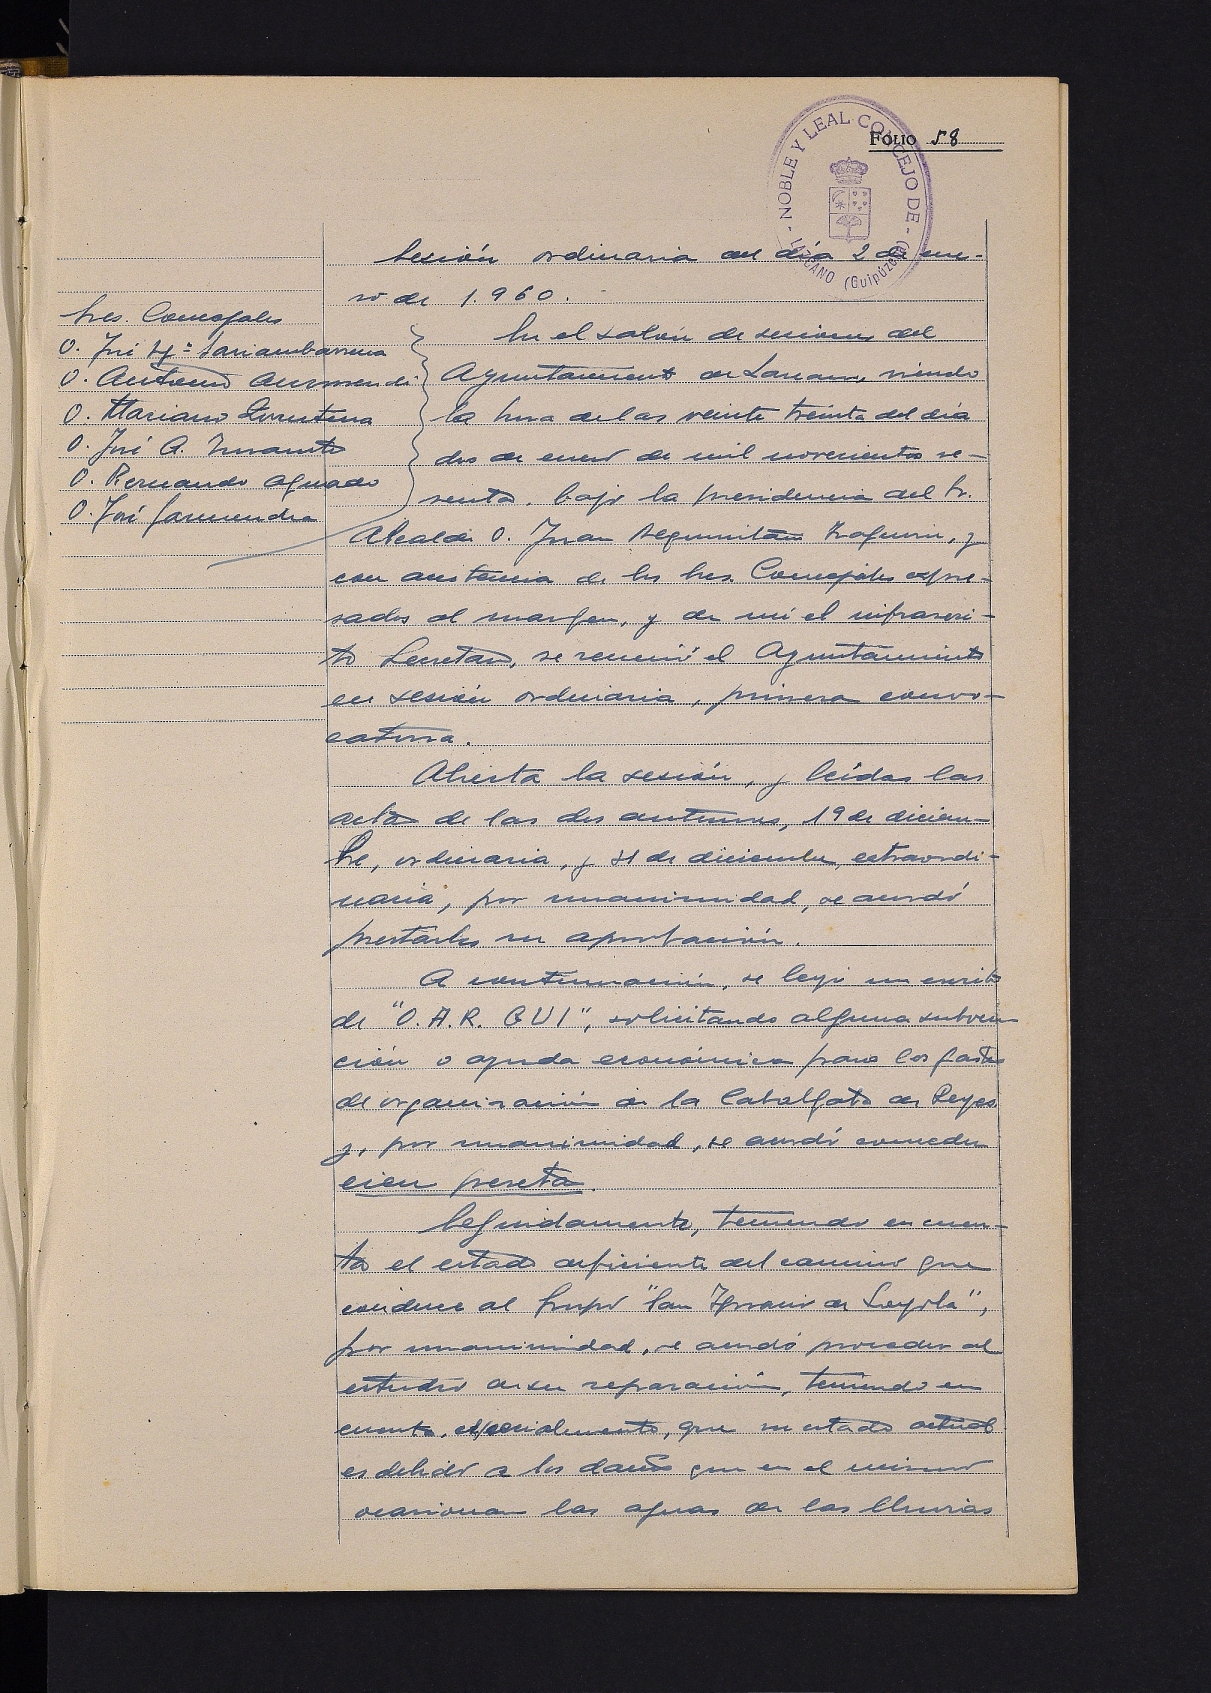 FOLIO 58
- NOBLE Y LEAL CONCEJO DE - LAZCANO (Guipúzcoa)
Sesión ordinaria del día 2 de ene-
ro de 1.960.
Sres. Concejales
D. José Mª
D. Antonio Aurmendi
D. Mariano
D. José A.
D. Fernando Aguado
D. José Garmendia
En el salón de sesiones del
Ayuntamiento de Lazcano, siendo
la hora de las veinte treinta del día
dos de enero de mil novecientos se-
senta, bajo la presidencia del Sr.
Alcalde D. Juan, y
con asistencia de los Sres. Concejales expre-
sados al margen, y de mi el infrascri-
to Secretario, se reunió el Ayuntamiento
en sesión ordinaria, primera convo-
catoria.
Abierta la sesión, y leídas las
actas de las dos anteriores, 19 de diciem-
bre, ordinaria, y 31 de diciembre, extraordi-
naria, por unanimidad, se acordó
prestarles su aprobación.
A continuación, se leyó un escrito
de "O.A.R. GUI", solicitando alguna subven
ción o ayuda económica para los gastos
de organización de la Cabalgata de Reyes
y, por unanimidad, se acordó conceder
cien pesetas.
Seguidamente, teniendo en cuen-
ta el estado deficiente del camino que
conduce al Grupo "San Ignacio de Loyola",
por unanimidad, se acordó proceder al
estudio de su reparación, teniendo en
cuenta, especialmente, que su estado actual
es debido a los daños que en el mismo
ocasionan las aguas de las lluvias